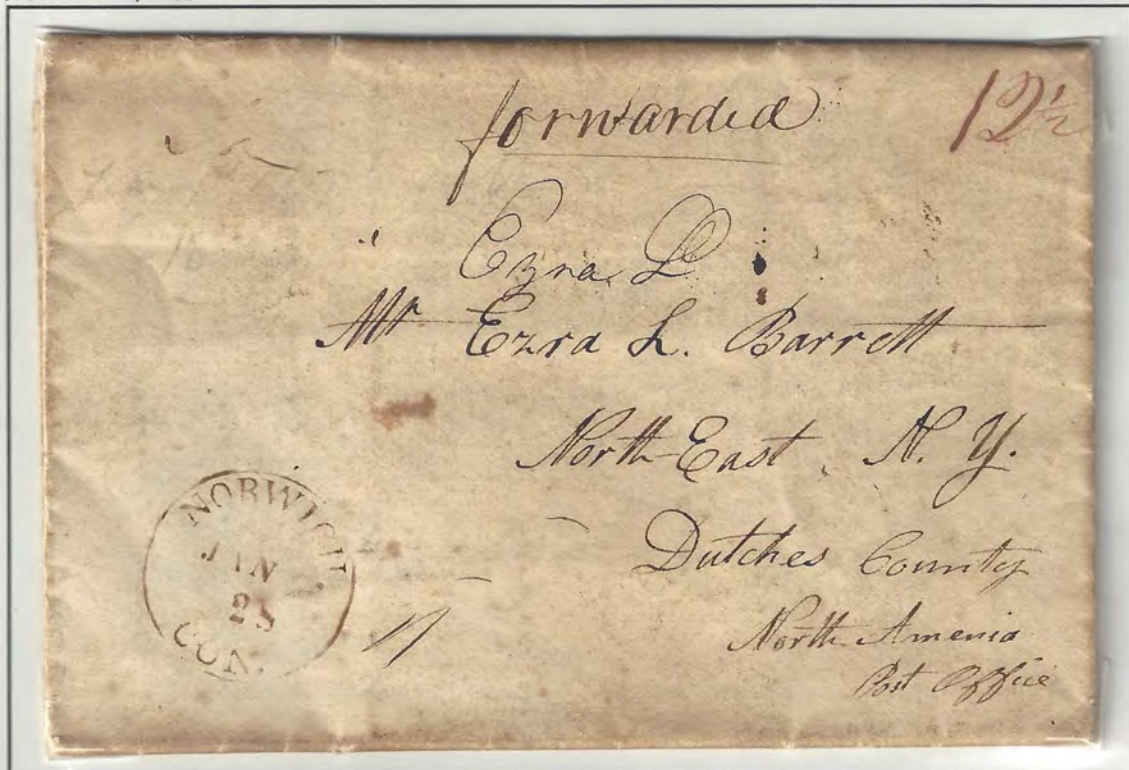 forwarded
12½
Ezra L
Mr Ezra L. Barrett
North-East, N. Y.
Dutches County
North Amenia
Post Office
NORWICH
JAN
28
CON.